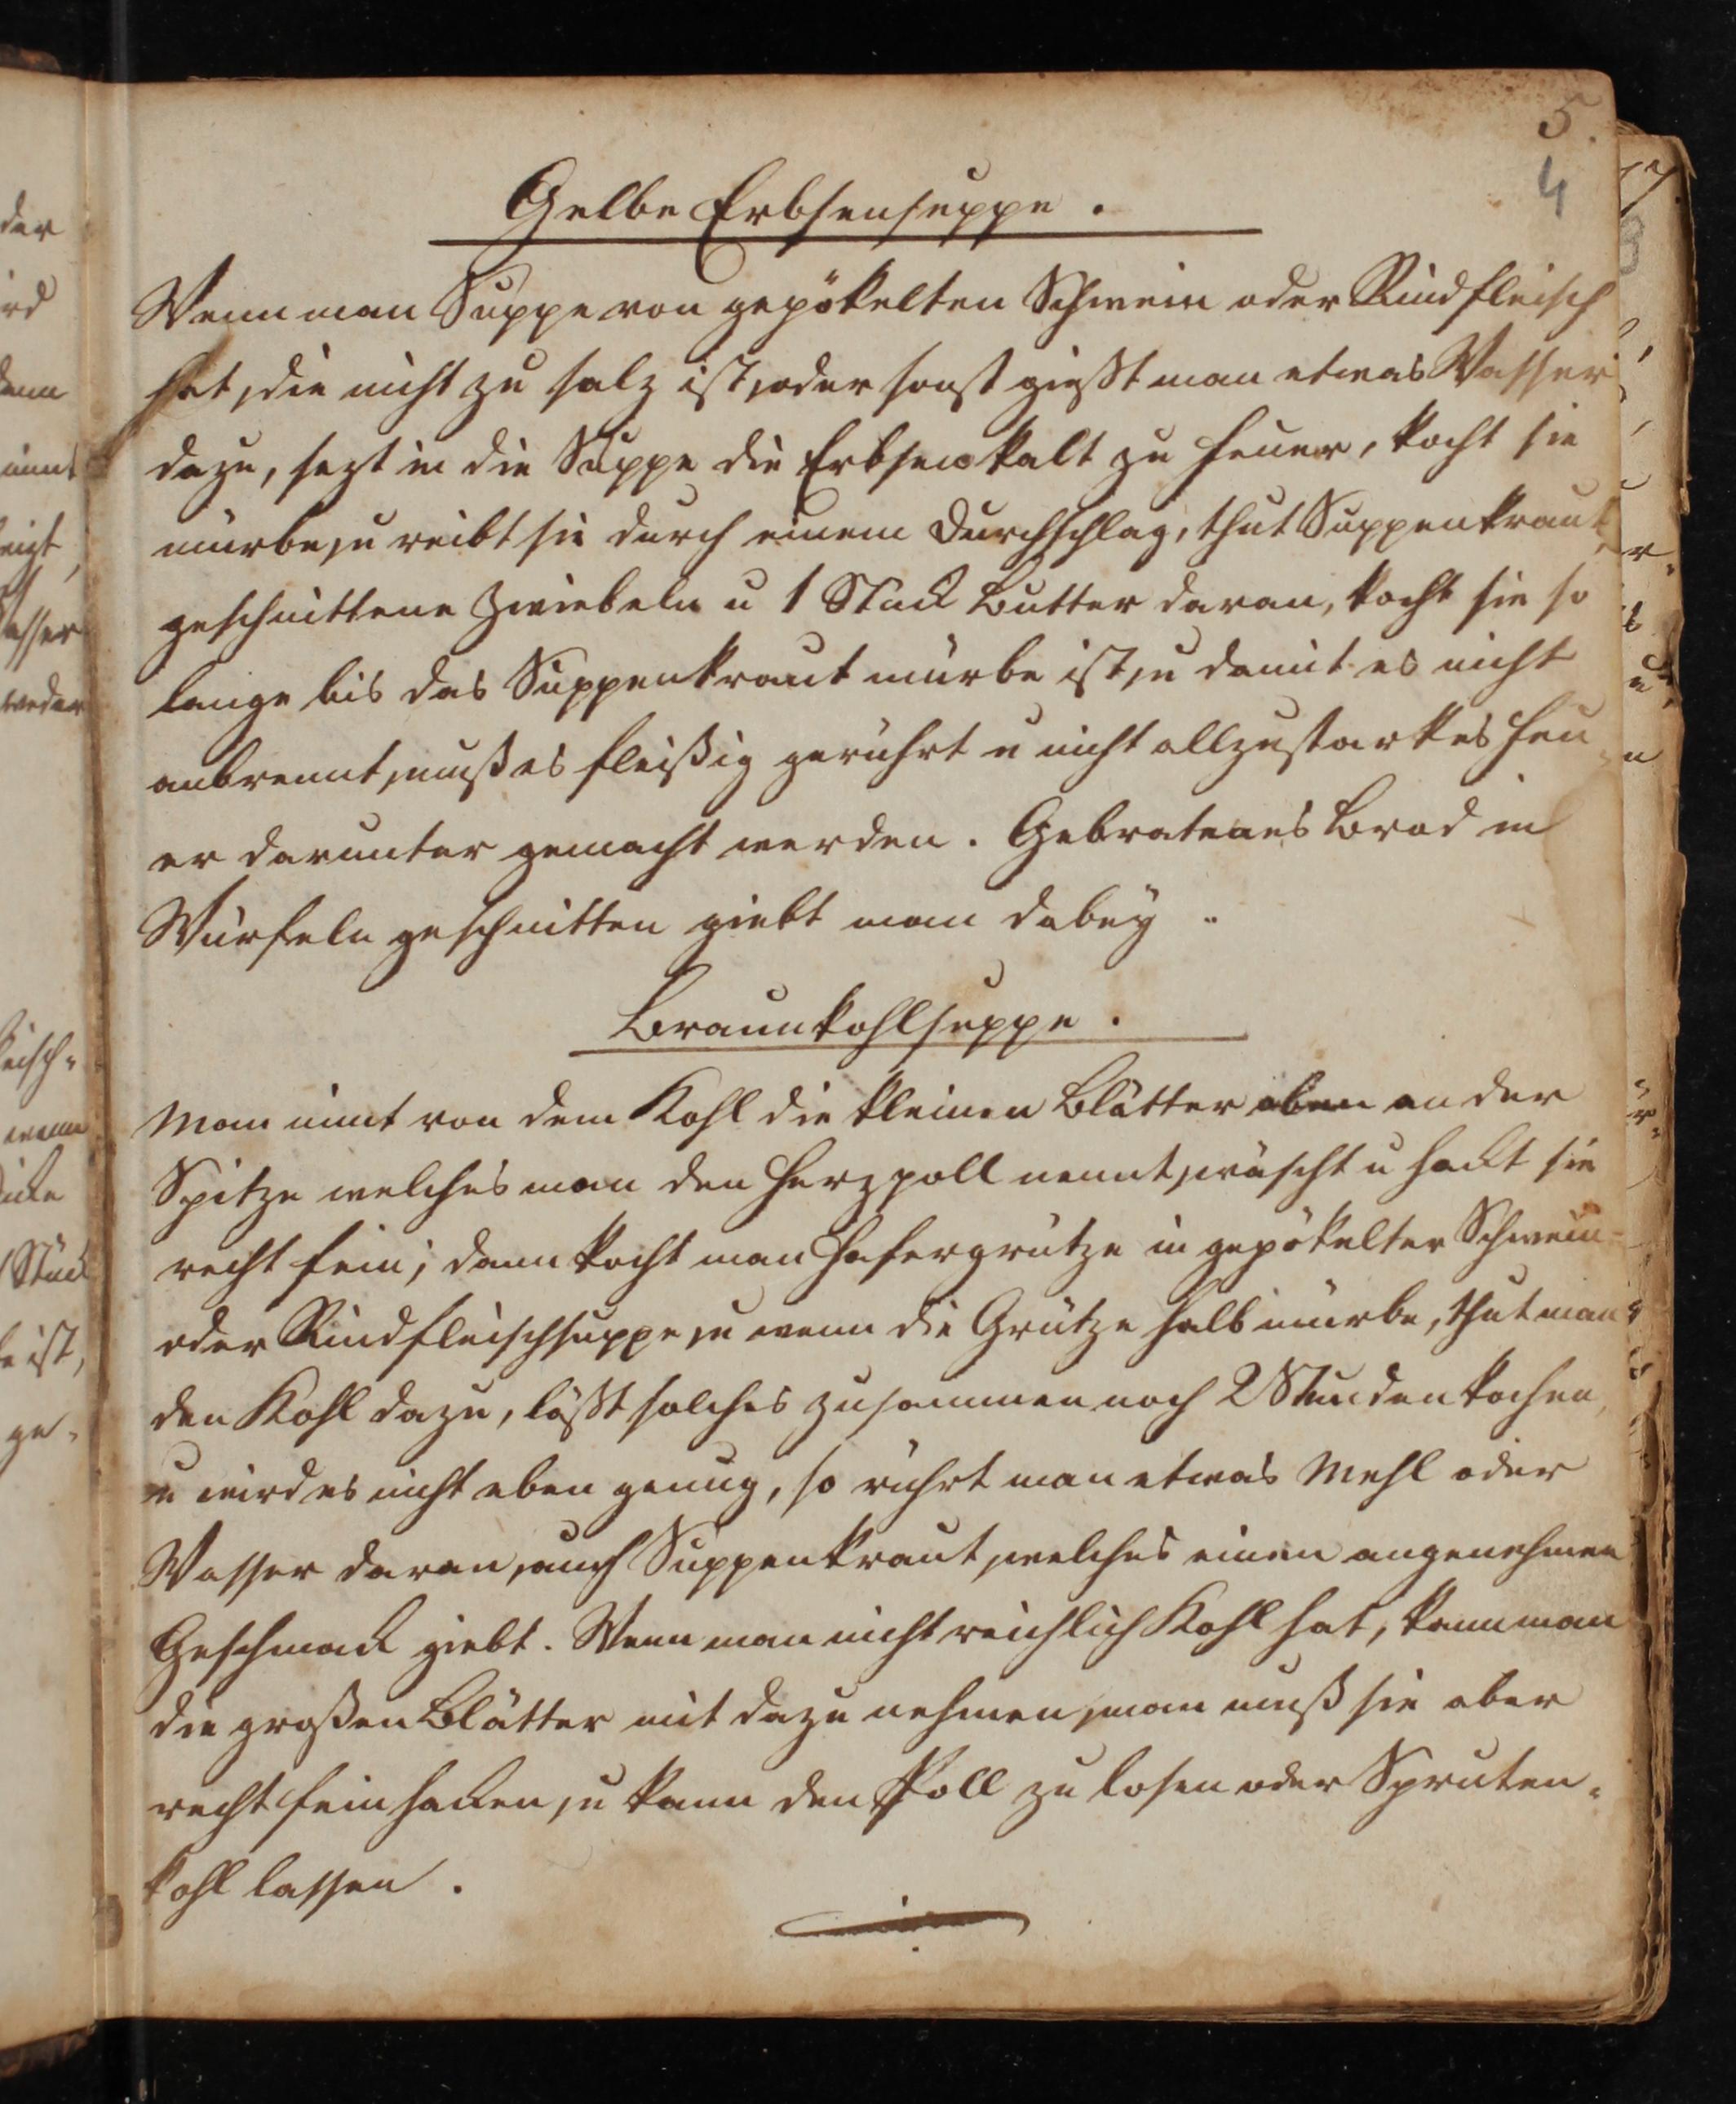 5.
4
Gelbe Erbsensuppe.
Wenn man Suppe von gepökelten Schwein oder Rindfleisch
hat, die nicht zu salz ist, oder sonst gießt man etwas Wasser
dazu, sezt in die Suppe die Erbsen kalt zu Feuer, kocht sie
mürbe, u reibt sie durch einem Durchschlag, thut Suppenkraut,
geschnittene Zwiebeln u 1 Stück Butter daran, kocht sie so
lange bis das Suppenkraut mürbe ist, u damit es nicht
anbrennt, muß es fleißig gerührt u nicht allzustarkes Feu
er darunter gemacht werden. Gebratenes Brod in
Würfeln geschnitten giebt man dabey.
Braunkohlsuppe.
Man nimt von dem Kohl die kleinen Blätter oben an der
Spitze welches man den Herzpoll nennt, wäscht u hackt sie
recht fein; dann kocht man Hafergrütze in gepökelter Schwein-
oder Rindfleischsuppe, u wenn die Grütze halb mürbe, thut man
den Kohl dazu, läßt solches zusammen noch 2 Stunden kochen,
u wird es nicht eben genug, so rührt man etwas Mehl oder
Wasser daran, auch Suppenkraut, welches einen angenehmen
Geschmack giebt. Wenn man nicht reichlich Kohl hat, kann man
die großen Blätter mit dazu nehmen, man muß sie aber
recht fein hacken, u kann den Poll zu losen oder Spruten-
kohl lassen.
der
asser
weder
eisch-
wenn
Stück
e ist,
ge-